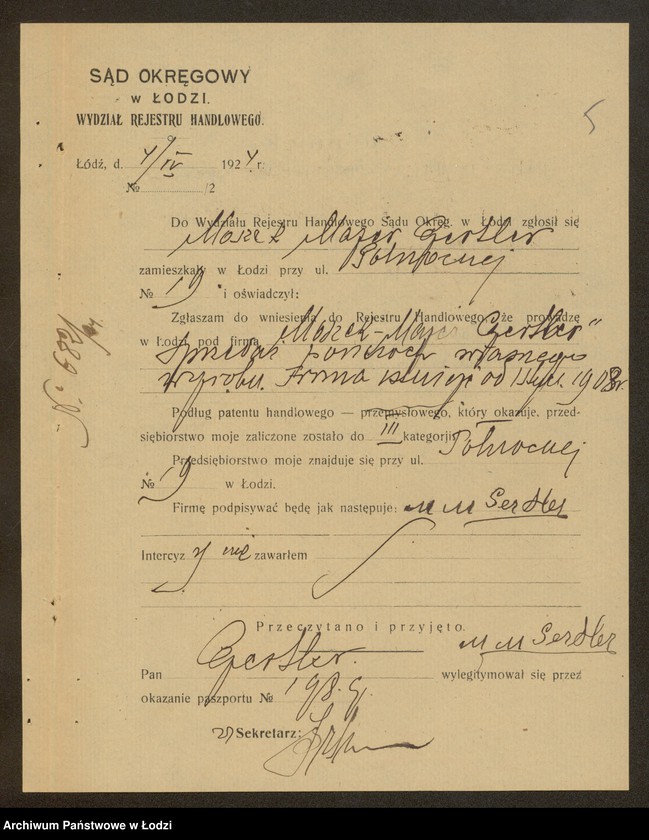 SĄD OKRĘGOWY
w ŁODZI.
WYDZIAŁ REJESTRU HANDLOWEGO.
5
Łódź, d. 4/IV 1924 r.
№ /2
Do Wydziału Rejestru Handlowego Sądu Okręg. w Łodzi zgłosił się
Majer Gertler
zamieszkały w Łodzi przy ul. Północnej
№ 19 i oświadczył:
Zgłaszam do wniesienia do Rejestru Handlowego, że prowadzę
w Łodzi pod firmą „ Majer Gertler”
sprzedaż pończoch własnego
wyrobu. Firma istnieje od 1908 r.
Podług patentu handlowego — przemysłowego, który okazuje, przed-
siębiorstwo moje zaliczone zostało do III kategorji
Przedsiębiorstwo moje znajduje się przy ul. Północnej
№ 19 w Łodzi.
Firmę podpisywać będę jak następuje: M M Gertler
Intercyzy nie zawarłem
Przeczytano i przyjęto.
M M Gertler
Pan Gertler wylegitymował się przez
okazanie paszportu №
Sekretarz:
Archiwum Państwowe w Łodzi